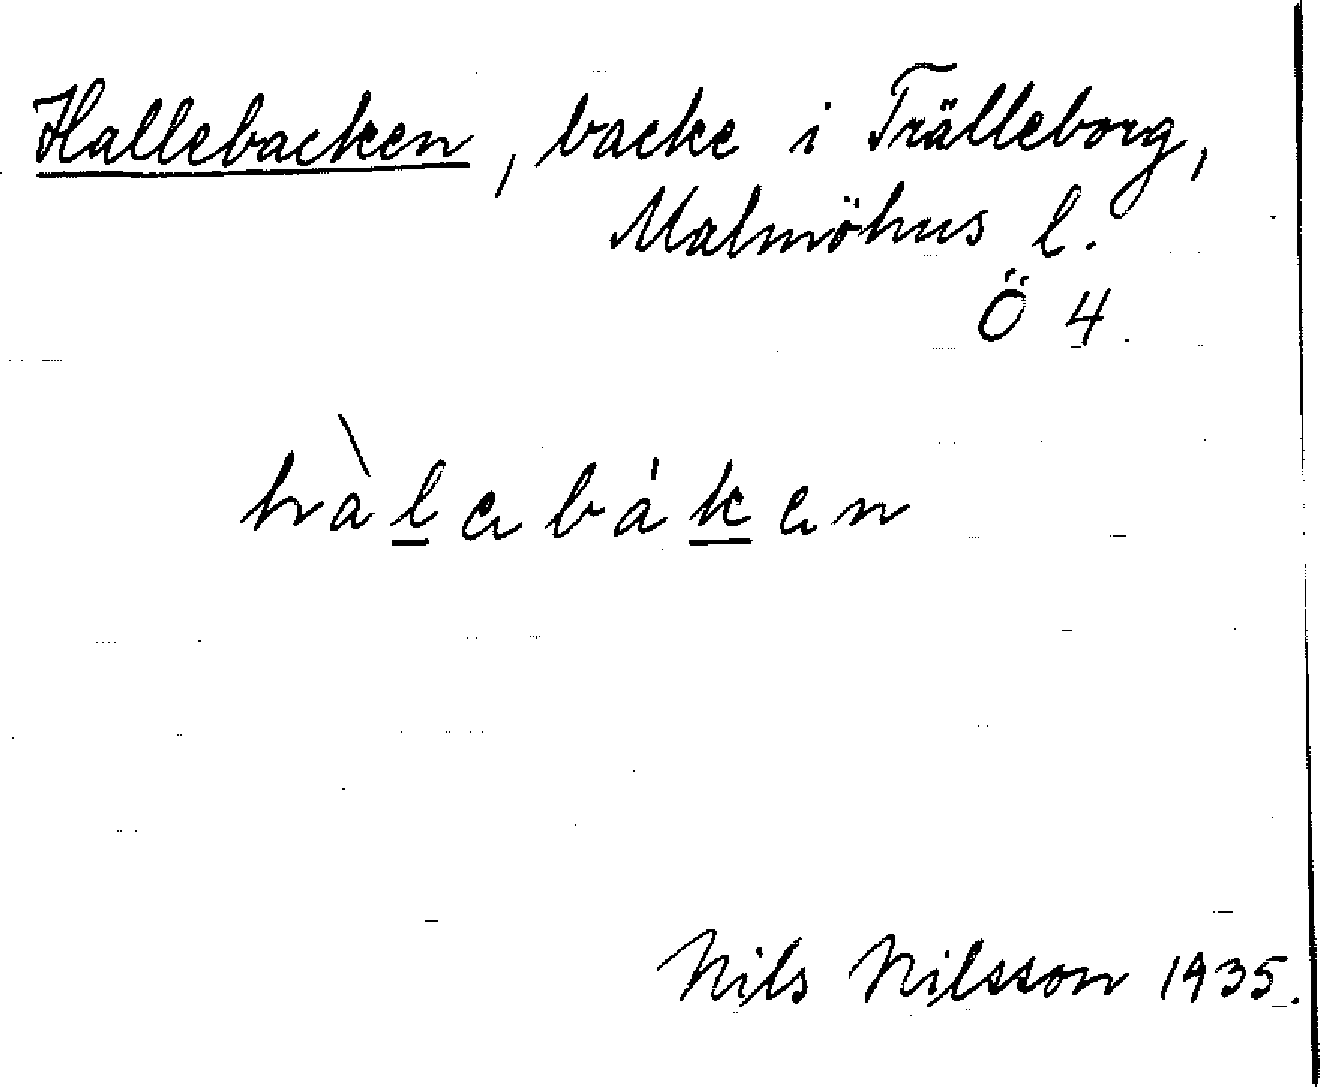 Hallebacken, backe i Trälleborg,
Malmöhus l.
Ö 4.
hàlebáken
Nils Nilsson 1935.